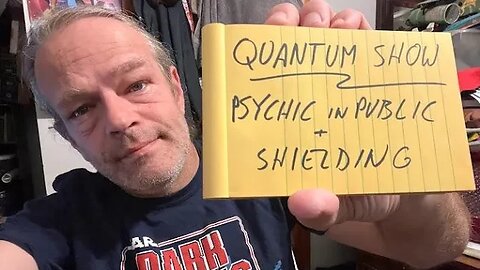 QUANTUM SHOW
PSYCHIC in PUBLIC
+
SHIELDING
DARK